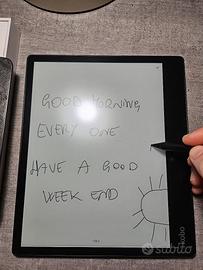 GOOD MORNING
EVERY ONE
HAVE A GOOD
WEEK END
kobo
subito